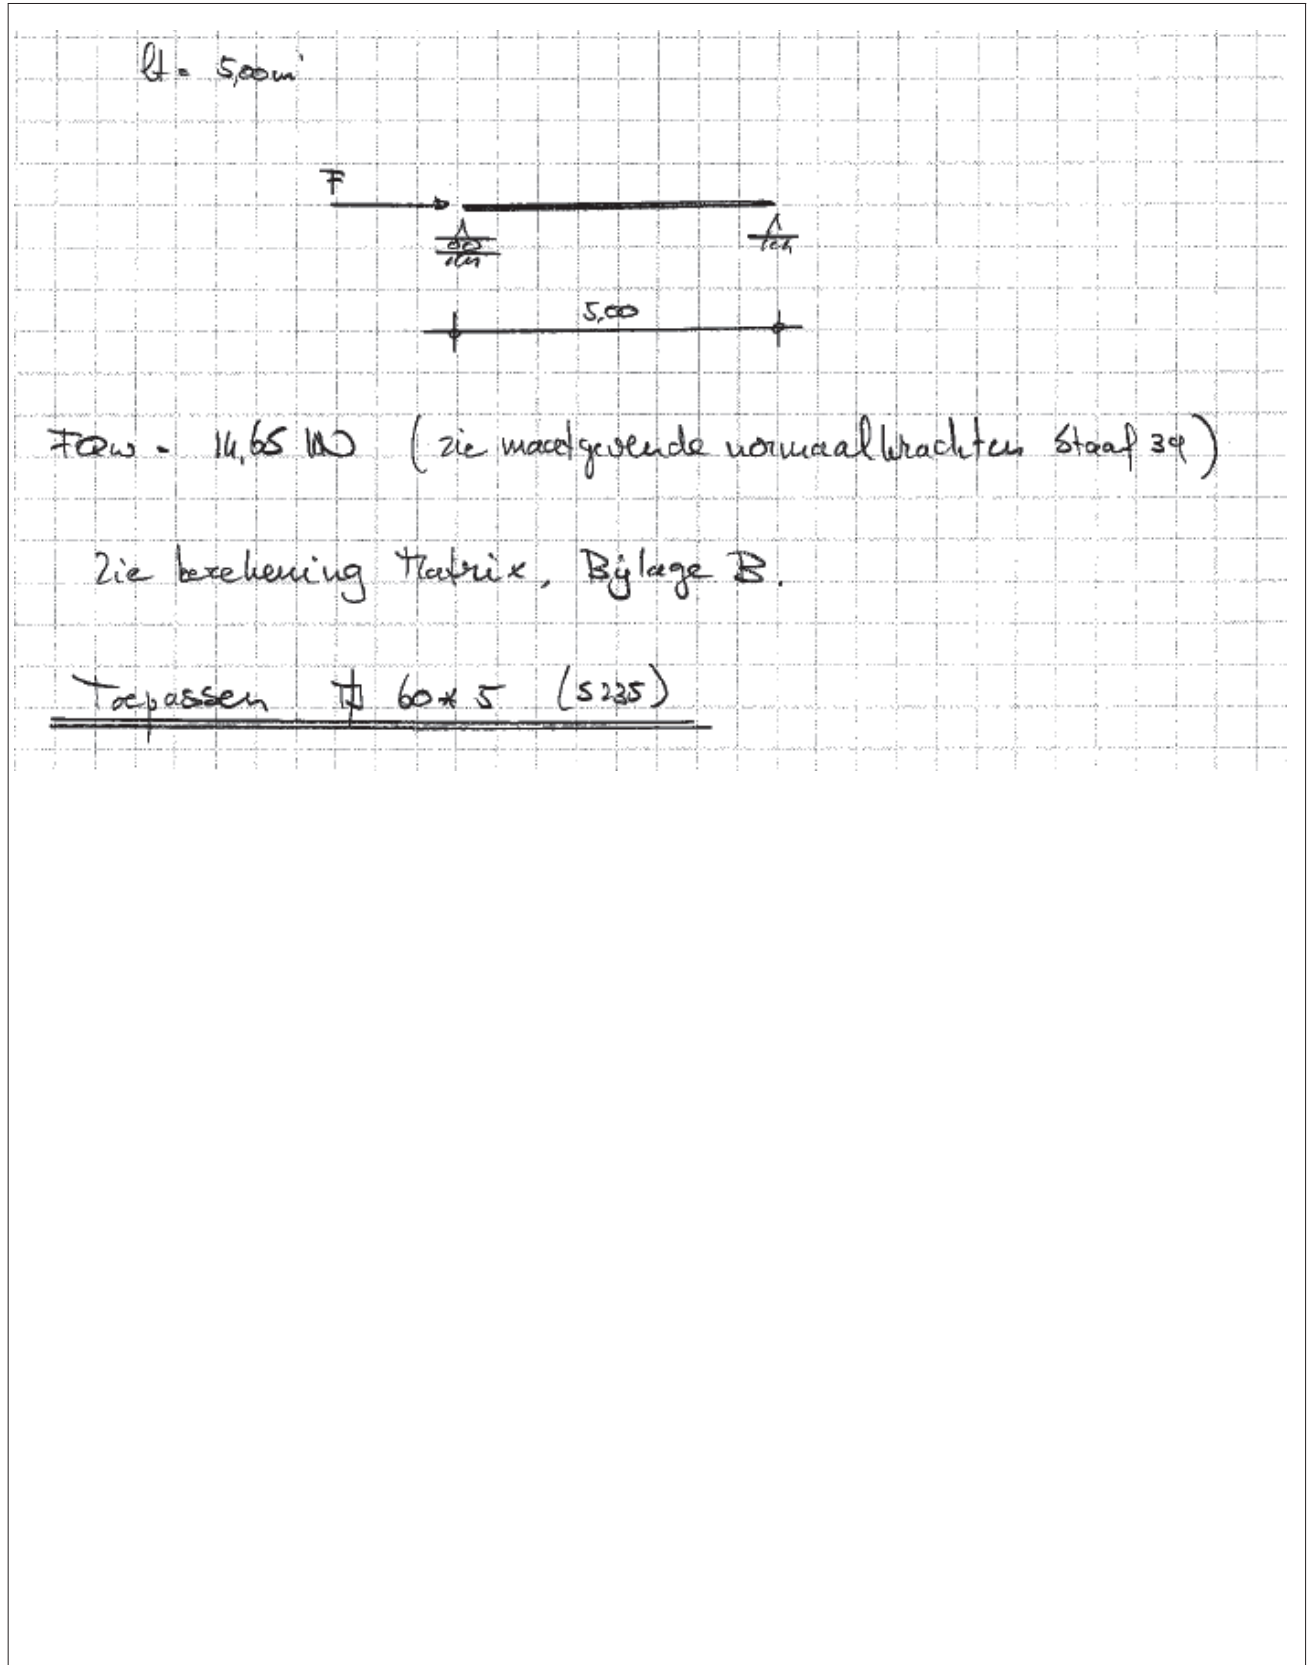 lt = 5,00 m'
F
5,00
= 14,65 kN (zie maatgevende normaalkrachten Staaf 39)
Zie berekening Matrix, Bijlage B.
Toepassen 60*5 (S235)